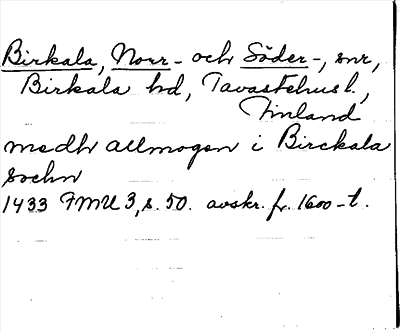 Birkala, Norr- och Söder-, snr,
Birkala hd, Tavastehus l.,
Finland
medh allmogen i Birckala
sochn
1433 FMU 3, s. 50. avskr. fr. 1600-t.